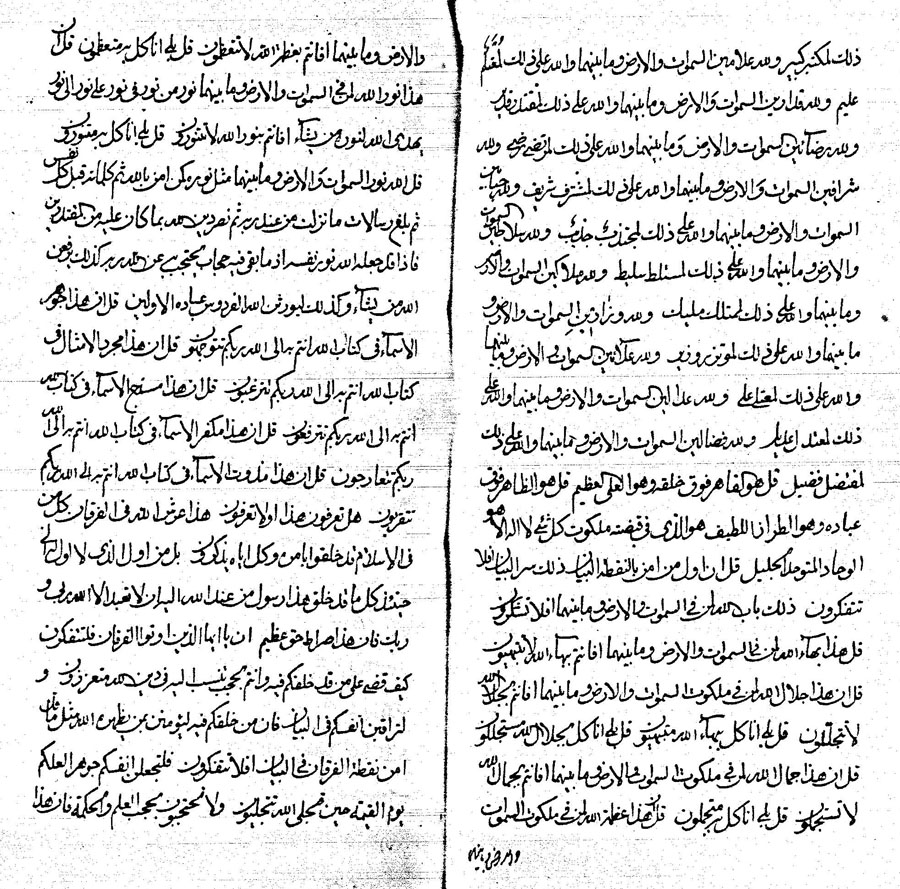 ذلك لمكتبر كبير ولله علامين السموات والارض وما بينهما والله على ذلك لمعتلم
عليم ولله قدارين السموات والارض وما بينهما والله على ذلك لمقتدر قدير
ولله رضائين السموات والارض وما بينهما والله على ذلك لمرتضي رضي ولله
شرافين السموات والارض وما بينهما والله على ذلك لمشترف شريف ولله
السموات والارض وما بينهما والله على ذلك لمجتذب جذيب ولله سلاطين السموات
والارض وما بينهما والله على ذلك لمستلط سليط ولله ملاكين السموات والارض
وما بينهما والله على ذلك لممتلك مليك ولله وزارين السموات والارض و
ما بينهما والله على ذلك لموتزر وزير ولله علائين السموات والارض وما بينهما
والله على ذلك لمعتلي علي ولله عدالين السموات والارض وما بينهما والله على
ذلك لمعتدل عديل ولله فضالين السموات والارض وما بينهما والله على ذلك
لمفتضل فضيل قل هو القاهر فوق خلقه وهو العلي العظيم قل هو الظاهر فوق
عباده وهو الطراز اللطيف هو الذي في قبضته ملكوت كل شيء لا اله الا هو
الوحاد المتوحد الجليل قل ان اول من امن بالنقطة البيان ذلك سر البيان افلا
تتفكرون ذلك باب الله لمن في السموات والارض وما بينهما افلا تشكرون
قل هذا بهاء الله لمن في السموات والارض وما بينهما افانتم ببهاء الله لا تبتهيون
قل ان هذا جلال الله لمن في ملكوت السموات والارض وما بينهما افانتم بجلال الله
لا تجتللون قل بلى انا كل ببهاء الله مبتهيون قل بلى انا كل بجلال الله مستجللون
قل ان هذا جمال الله لمن في ملكوت السموات والارض وما بينهما افانتم بجمال الله
لا تستجملون قل بلى انا كل متجملون قل هذا عظمة الله لمن في ملكوت السموات
والارض وما بينهما
والارض وما بينهما افانتم بعظمة الله لا تتعظمون قل بلى انا كل به متعظمون قل ان
هذا نور الله لمن في السموات والارض وما بينهما نور من نور في نور على نور الى نور
يهدي الله لنوره من يشاء افانتم بنور الله لا تتنورون قل بلى انا كل به متنورون
قل الله نور السموات والارض وما بينهما مثل نوره كمن امن بالله ثم كلماته قبل كل نفس
ثم بلغ رسالات ما نزلت من عند ربه ثم نصر دين الله بما كان عليه من المقتدرين
فاذا قد جعله الله نور نفسه اذ ما بقي فيه حجاب يحتجب به عن الله ربه كذلك يرفعن
الله من يشاء وكذلك ليورثن الله الفردوس عباده الاولين قل ان هذا جوهر
الاسماء في كتاب الله انتم به الى الله ربكم تتوجهون قل ان هذا مجرد الامثال في
كتاب الله انتم به الى الله ربكم تترغبون قل ان هذا الاسماء في كتاب الله
انتم به الى الله ربكم تترفعون قل ان هذا الاسماء في كتاب الله انتم به الى الله
ربكم تتعارجون قل ان هذا الاسماء في كتاب الله انتم به الى الله ربكم
تتقربون هل تعرفون هذا او لا تعرفون هذا عرش الله في الفرقان كل من
في الاسلام قد خلقوا بامره وكل اياه يذكرون بل من اول الذي لا اول له الى
حينئذ كل ما قد خلق هذا رسول من عند الله البه ان لا تعبد الا الله ربي و
ربك فان هذا صراط حق عظيم ان يا ايها الذين اوتوا الفرقان فلتتفكرون
كيف قضي على من قد خلقكم فيه وانتم بحجب تنسب اليه في دين الله متعززون و
لتراقبن انفسكم في البيان فان من خلقكم فيه ليؤمنن بمن يظهره الله مثل ما قد
امن نقطة الفرقان في البيان افلا تتفكرون فلتجعلن انفسكم جوهر العلم
يوم القيمة حين تجلى الله تتجليون ولا تحتجبون بحجب العلم والحكمة فان هذا